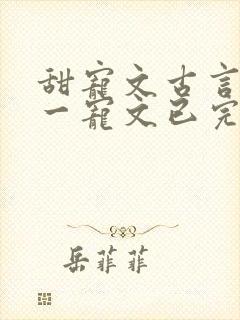 甜寵文古言
一寵文已完
岳菲菲